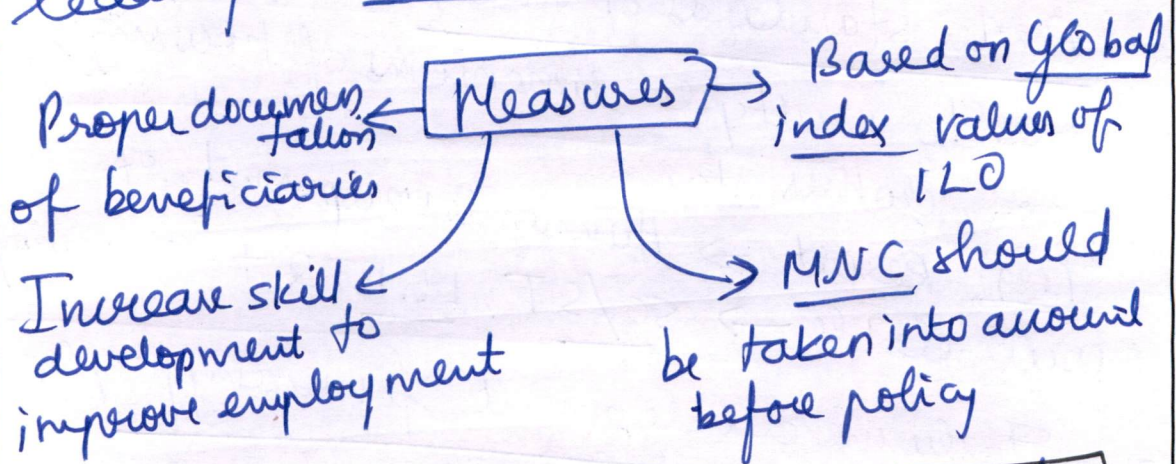 Measures
Proper documen
tation
of beneficiaries
Based on Global
index values of
ILO
Increase skill
development to
improve employment
MNC should
be taken into account
before policy